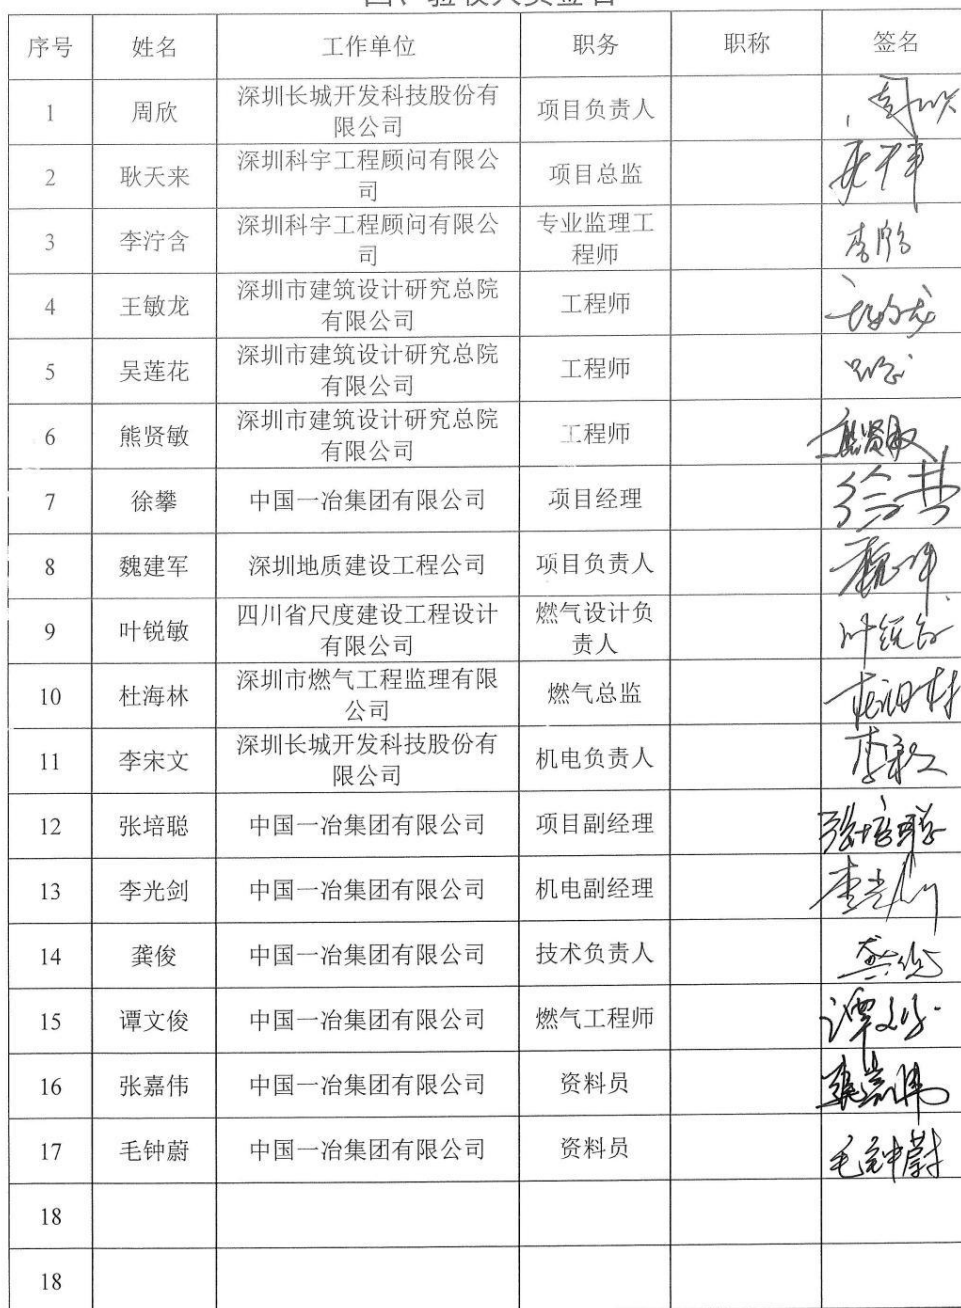 四、验收人员签名
序号 姓名 工作单位 职务 职称 签名
1 周欣 深圳长城开发科技股份有 项目负责人
限公司
2 耿天来 深圳科宇工程顾问有限公 项目总监
司
3 李泞含 深圳科宇工程顾问有限公 专业监理工
司 程师
4 王敏龙 深圳市建筑设计研究总院 工程师
有限公司
5 吴莲花 深圳市建筑设计研究总院 工程师
有限公司
6 熊贤敏 深圳市建筑设计研究总院 工程师 熊贤敏
有限公司
7 徐攀 中国一冶集团有限公司 项目经理
8 魏建军 深圳地质建设工程公司 项目负责人
9 叶锐敏 四川省尺度建设工程设计 燃气设计负 叶锐敏
有限公司 责人
10 杜海林 深圳市燃气工程监理有限 燃气总监
公司
11 李宋文 深圳长城开发科技股份有 机电负责人
限公司
12 张培聪 中国一冶集团有限公司 项目副经理 张培聪
13 李光剑 中国一冶集团有限公司 机电副经理 李光剑
14 龚俊 中国一冶集团有限公司 技术负责人 龚俊
15 谭文俊 中国一冶集团有限公司 燃气工程师 谭文俊
16 张嘉伟 中国一冶集团有限公司 资料员 张嘉伟
17 毛钟蔚 中国一冶集团有限公司 资料员 毛钟蔚
18
18